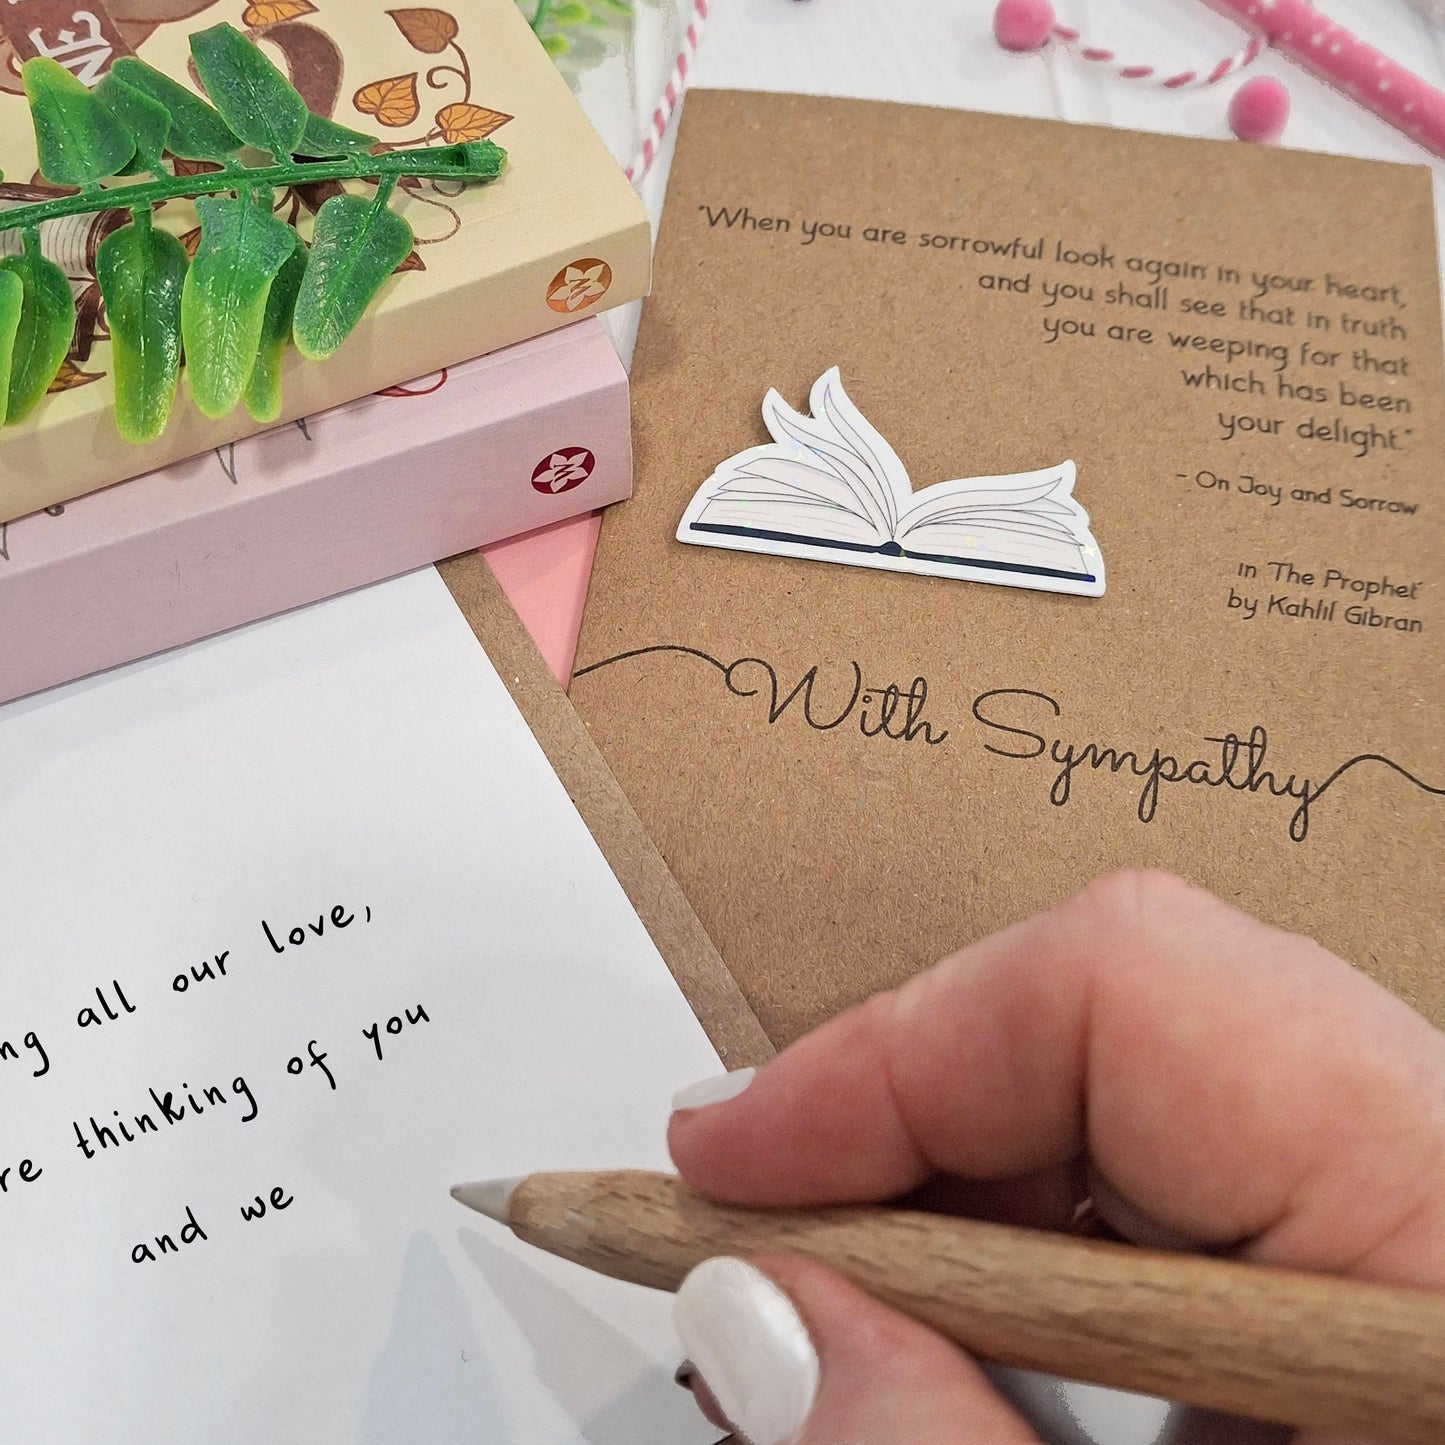 "When you are sorrowful look again in your heart,
and you shall see that in truth
you are weeping for that
which has been
your delight"
- On Joy and Sorrow
in 'The Prophet'
by Kahlil Gibran
With Sympathy
all our love,
thinking of you
and we